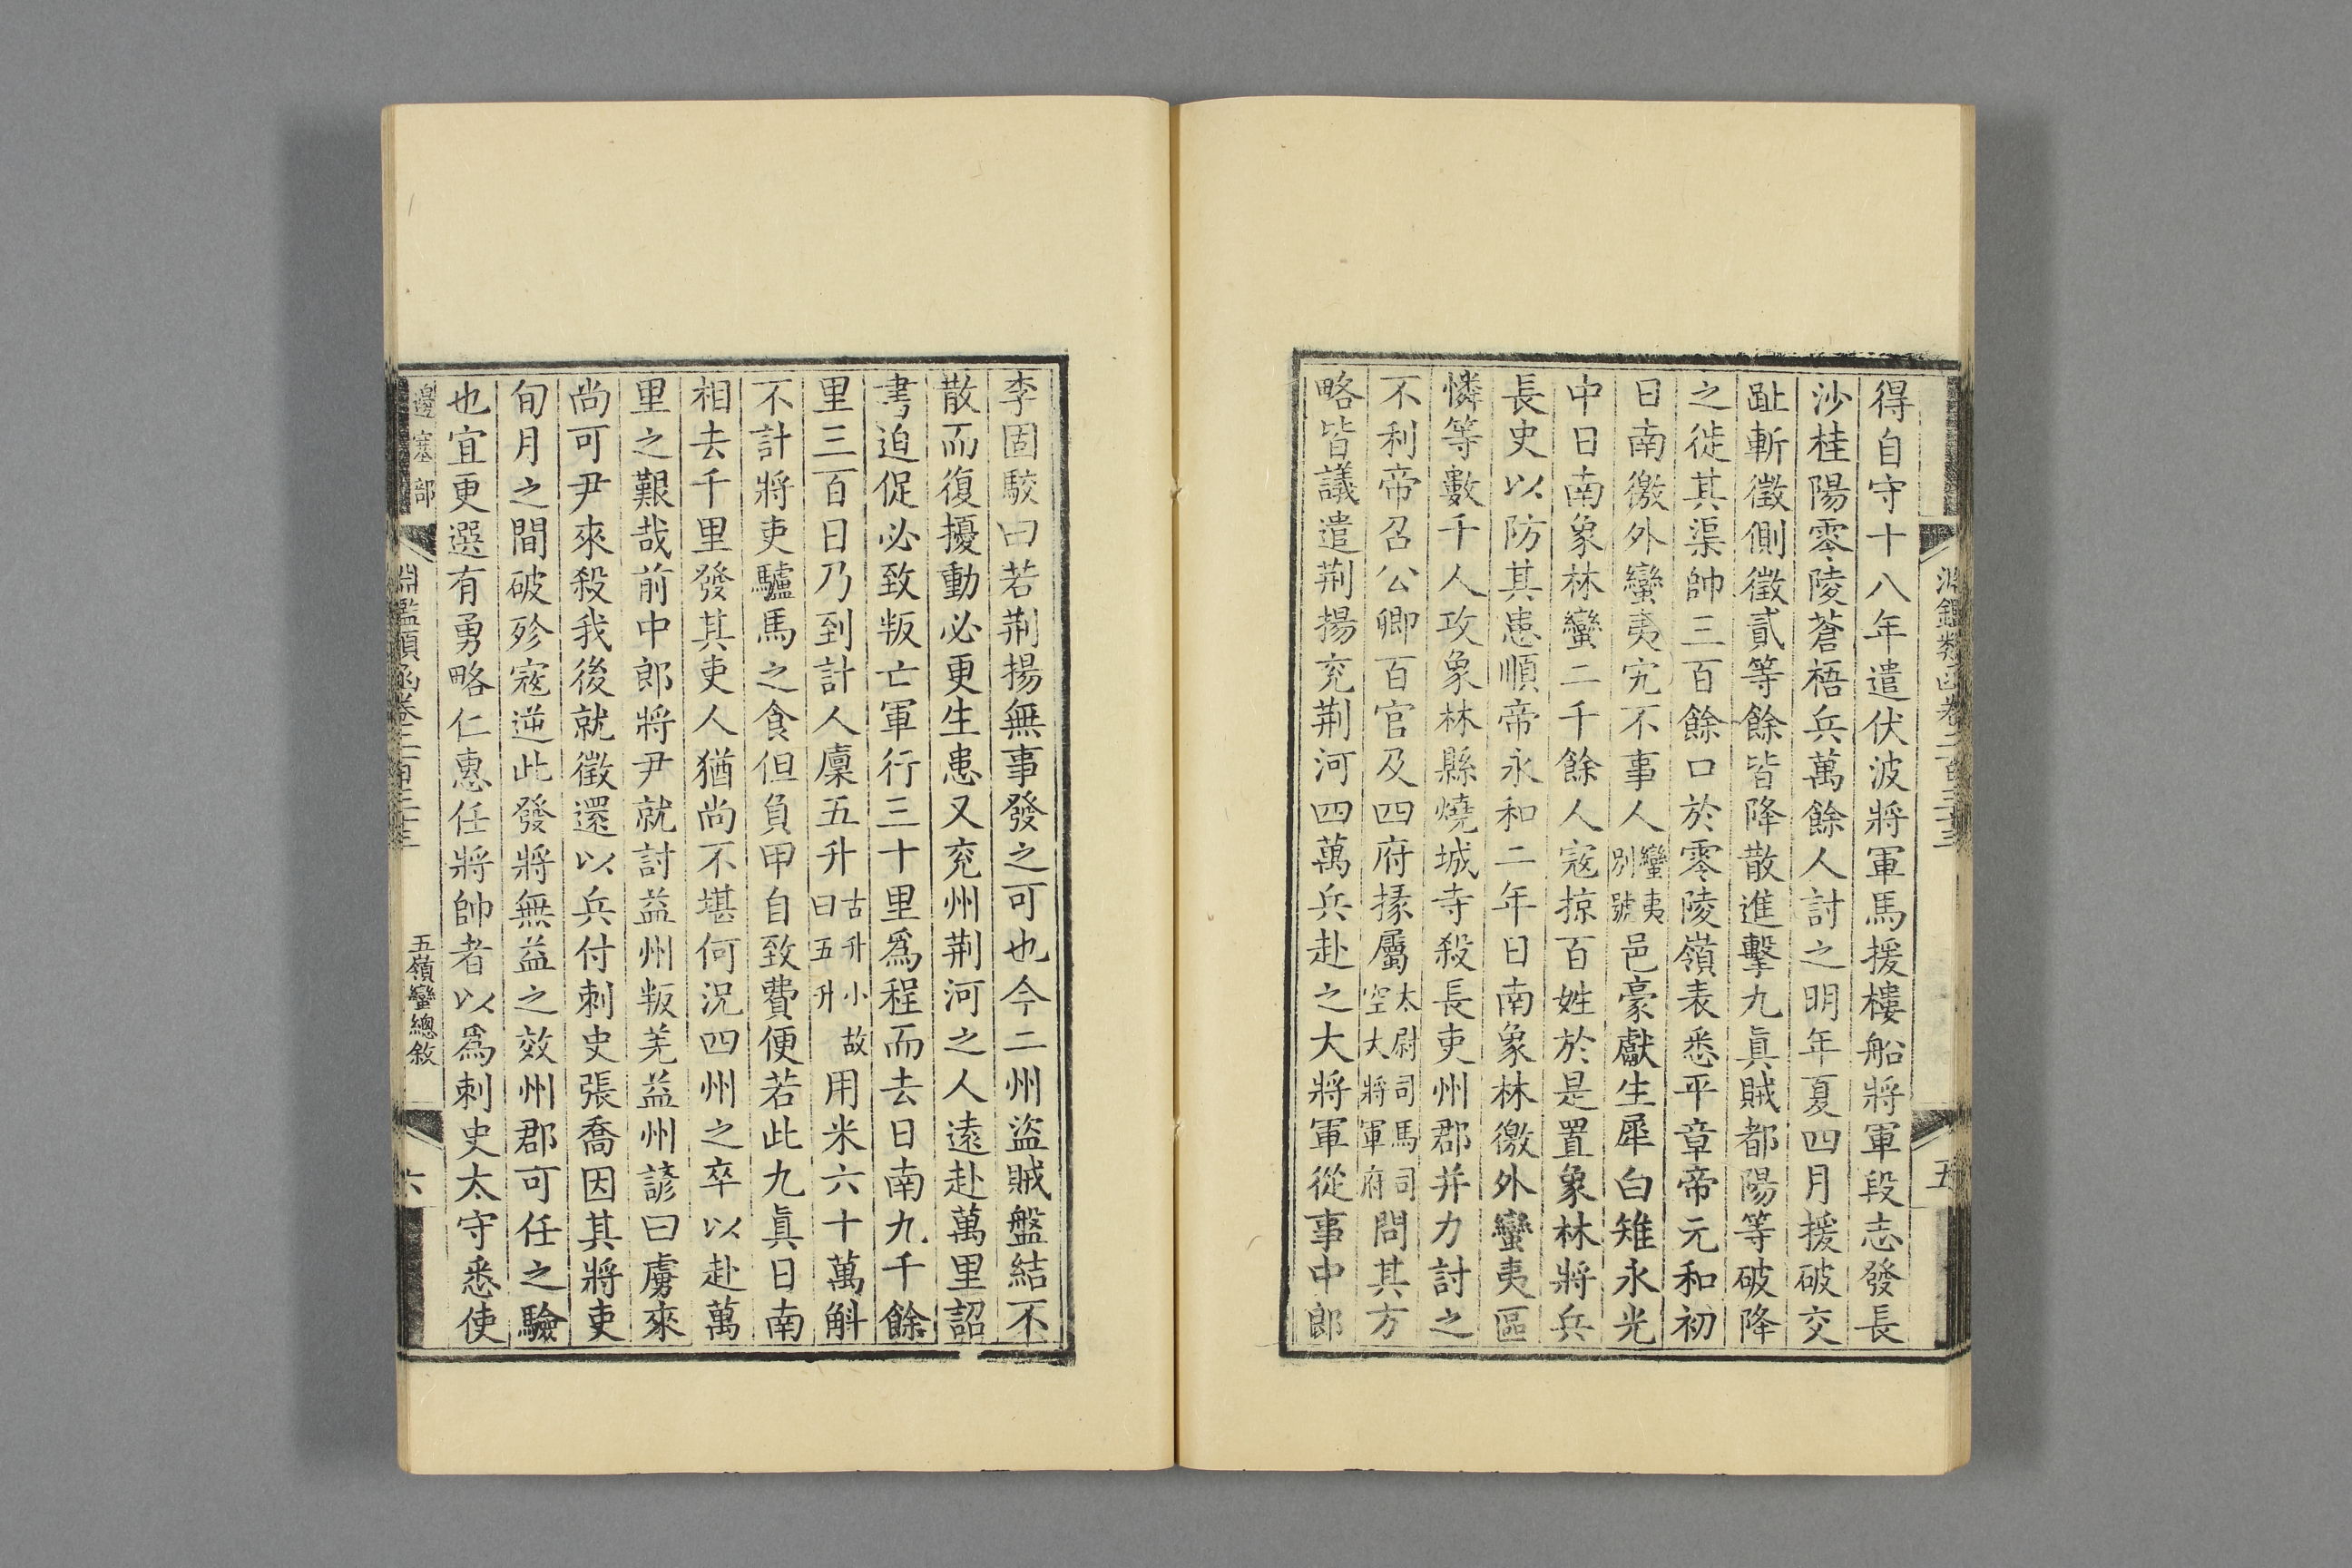 得自守十八年遣伏波將軍馬援樓船將軍段志發長
沙桂陽零陵蒼梧兵萬餘人討之明年夏四月援破交
趾斬徵側徵貳等餘皆降散進擊九眞賊都陽等破降
之徙其渠帥三百餘口於零陵嶺表悉平章帝元和初
日南徼外蠻夷究不事人蠻夷別號邑豪獻生犀白雉永光
中日南象林蠻二千餘人寇掠百姓於是置象林將兵
長史以防其患順帝永和二年日南象林徼外蠻夷區
憐等數千人攻象林縣燒城寺殺長吏州郡并力討之
不利帝召公卿百官及四府掾屬太尉司馬司空大將軍府問其方
略皆議遣荆揚兖荆河四萬兵赴之大將軍從事中郎
五
李固駮曰若荆揚無事發之可也今二州盜賊盤結不
散而復擾動必更生患又兖州荆河之人遠赴萬里詔
書迫促必致叛亡軍行三十里爲程而去日南九千餘
里三百日乃到計人廩五升古升小故曰五升用米六十萬斛
不計將吏驢馬之食但負甲自致費便若此九眞日南
相去千里發其吏人猶尚不堪何況四州之卒以赴萬
里之艱哉前中郎將尹就討益州叛羌益州諺曰虜來
尚可尹來殺我後就徵還以兵付刺史張喬因其將吏
旬月之間破殄寇逆此發將無益之效州郡可任之驗
也宜更選有勇略仁惠任將帥者以爲刺史太守悉使
邊塞部
淵鑑類函卷二百三十三
五嶺蠻總敘
六